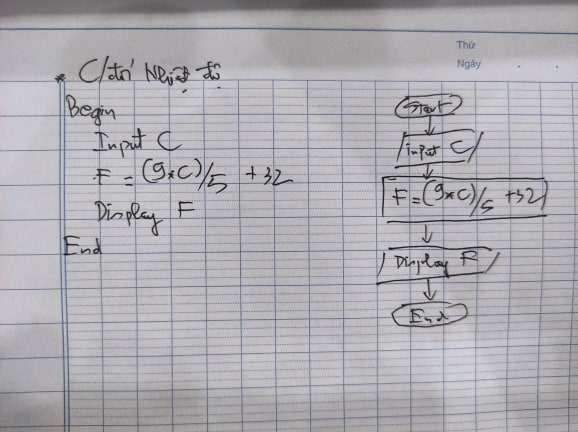 Thứ
Ngày
* C/đổi Nhiệt độ
Begin
Input C
F = (9*C)/5 +32
Display F
End
Start
input C
F = (9*C)/5 +32
Display F
End